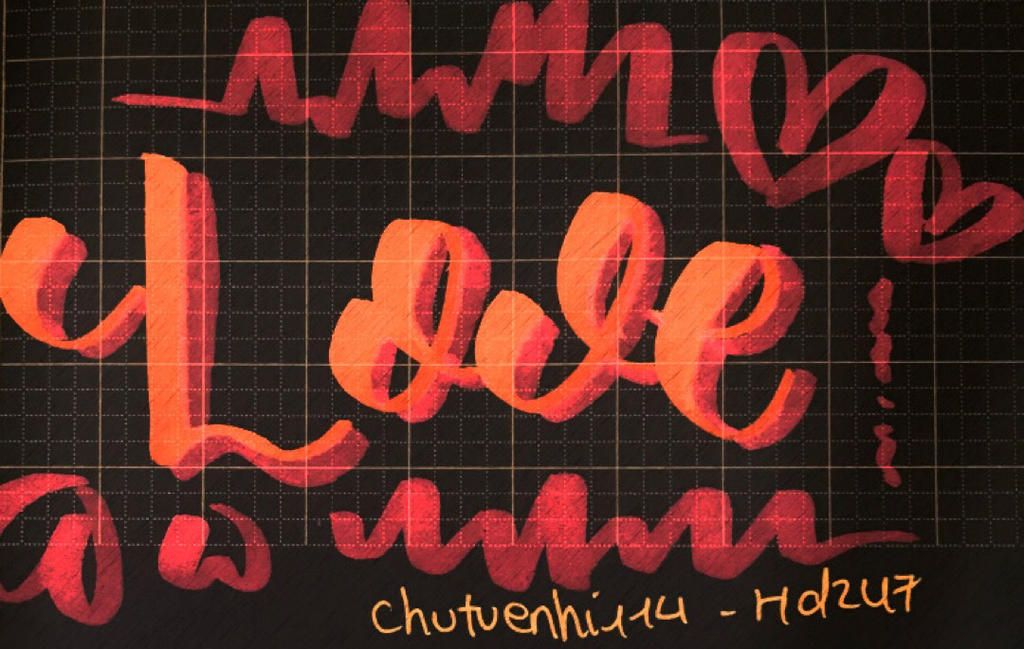 Love
Chutuenhi114 - Hd247